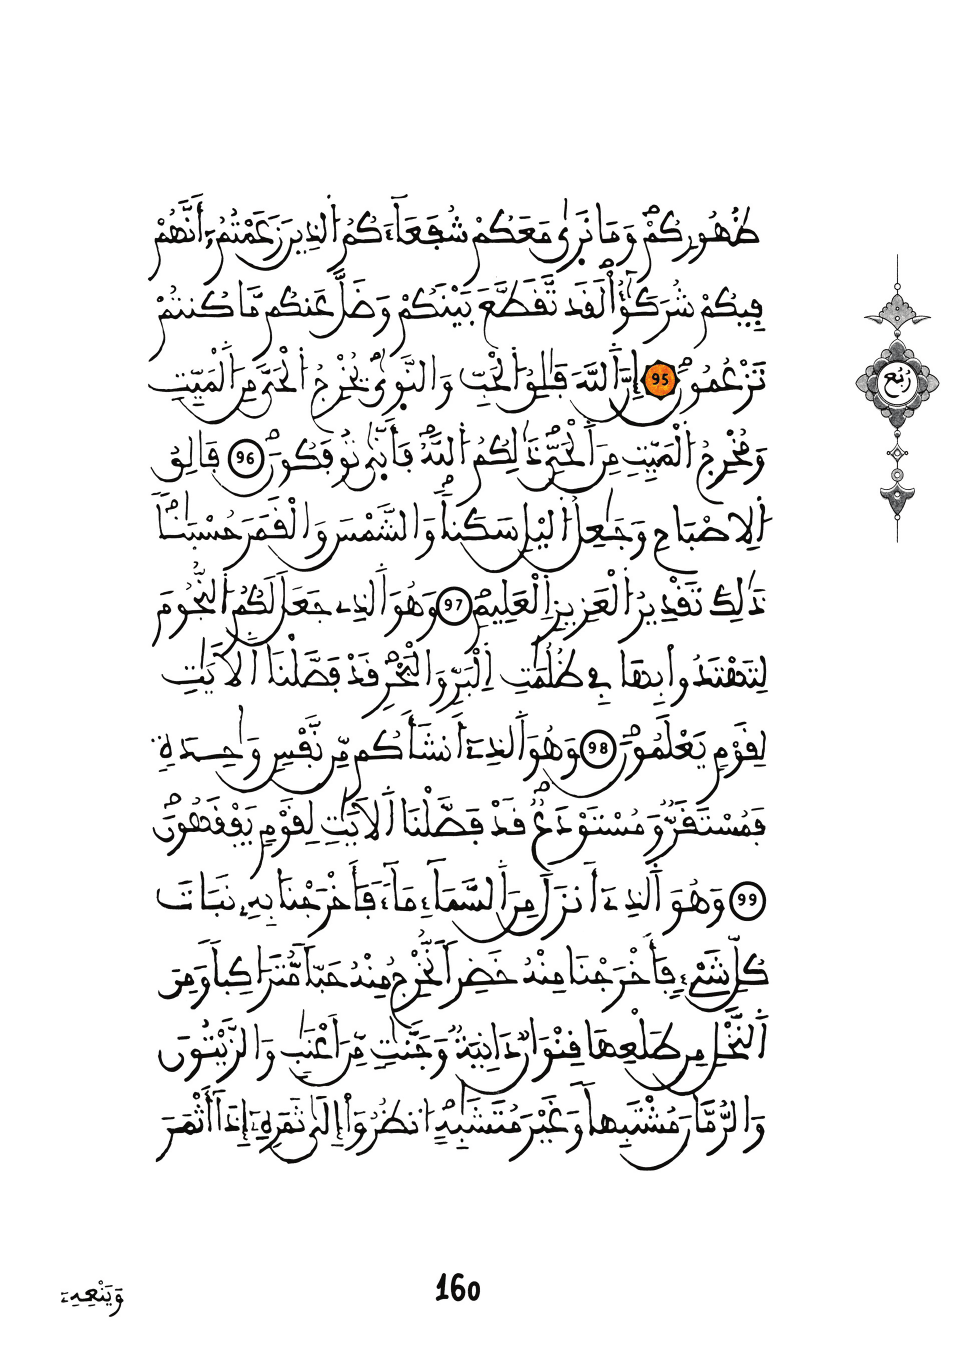 ظُهُورِكُمْ وَمَا نَرٜىٰ مَعَكُمْ شُفَعَآءَكُمُ اُ۬لذِينَ زَعَمْتُمُۥٓ أَنَّهُمْ
فِيكُمْ شُرَكَٰٓؤُاْۖ لَقَد تَّقَطَّعَ بَيْنَكُمْ وَضَلَّ عَنكُم مَّا كُنتُمْ
تَزْعُمُونَۖ 95 إِنَّ اَ۬للَّهَ فَٰلِقُ اُ۬لْحَبِّ وَالنَّو۪ىٰۖ يُخْرِجُ اُ۬لْحَيَّ مِنَ اَ۬لْمَيِّتِ
وَمُخْرِجُ اُ۬لْمَيِّتِ مِنَ اَ۬لْحَيِّۖ ذَٰلِكُمُ اُ۬للَّهُۖ فَأَنّ۪ىٰ تُوفَكُونَۖ 96 فَالِقُ
اُ۬لِاصْبَاحِ وَجَٰعِلُ اُ۬ليْلِ سَكَناٗۖ وَالشَّمْسَ وَالْقَمَرَ حُسْبَٰناٗۖ
ذَٰلِكَ تَقْدِيرُ اُ۬لْعَزِيزِ اِ۬لْعَلِيمِۖ 97 وَهُوَ اَ۬لذِے جَعَلَ لَكُمُ اُ۬لنُّجُومَ
لِتَهْتَدُواْ بِهَا فِے ظُلُمَٰتِ اِ۬لْبَرِّ وَالْبَحْرِۖ قَدْ فَصَّلْنَا اَ۬لَايَٰتِ
لِقَوْمٖ يَعْلَمُونَۖ 98 وَهُوَ اَ۬لذِےٓ أَنشَأَكُم مِّن نَّفْسٖ وَٰحِدَةٖ
فَمُسْتَقَرّٞ وَمُسْتَوْدَعٞۖ قَدْ فَصَّلْنَا اَ۬لَايَٰتِ لِقَوْمٖ يَفْقَهُونَۖ
99 وَهُوَ اَ۬لذِےٓ أَنزَلَ مِنَ اَ۬لسَّمَآءِ مَآءٗ فَأَخْرَجْنَا بِهِۦ نَبَاتَ
كُلِّ شَےْءٖ فَأَخْرَجْنَا مِنْهُ خَضِراٗ نُّخْرِجُ مِنْهُ حَبّاٗ مُّتَرَاكِباٗ وَمِنَ
اَ۬لنَّخْلِ مِن طَلْعِهَا قِنْوَانٞ دَانِيَةٞ وَجَنَّٰتٖ مِّنَ اَعْنَٰبٖ وَالزَّيْتُونَ
وَالرُّمَّانَ مُشْتَبِهاٗ وَغَيْرَ مُتَشَٰبِهٍۖ اِ۟نظُرُوٓاْ إِلَىٰ ثَمَرِهِۦٓ إِذَآ أَثْمَرَ
رُبُع
160
وَيَنْعِهِۦٓ